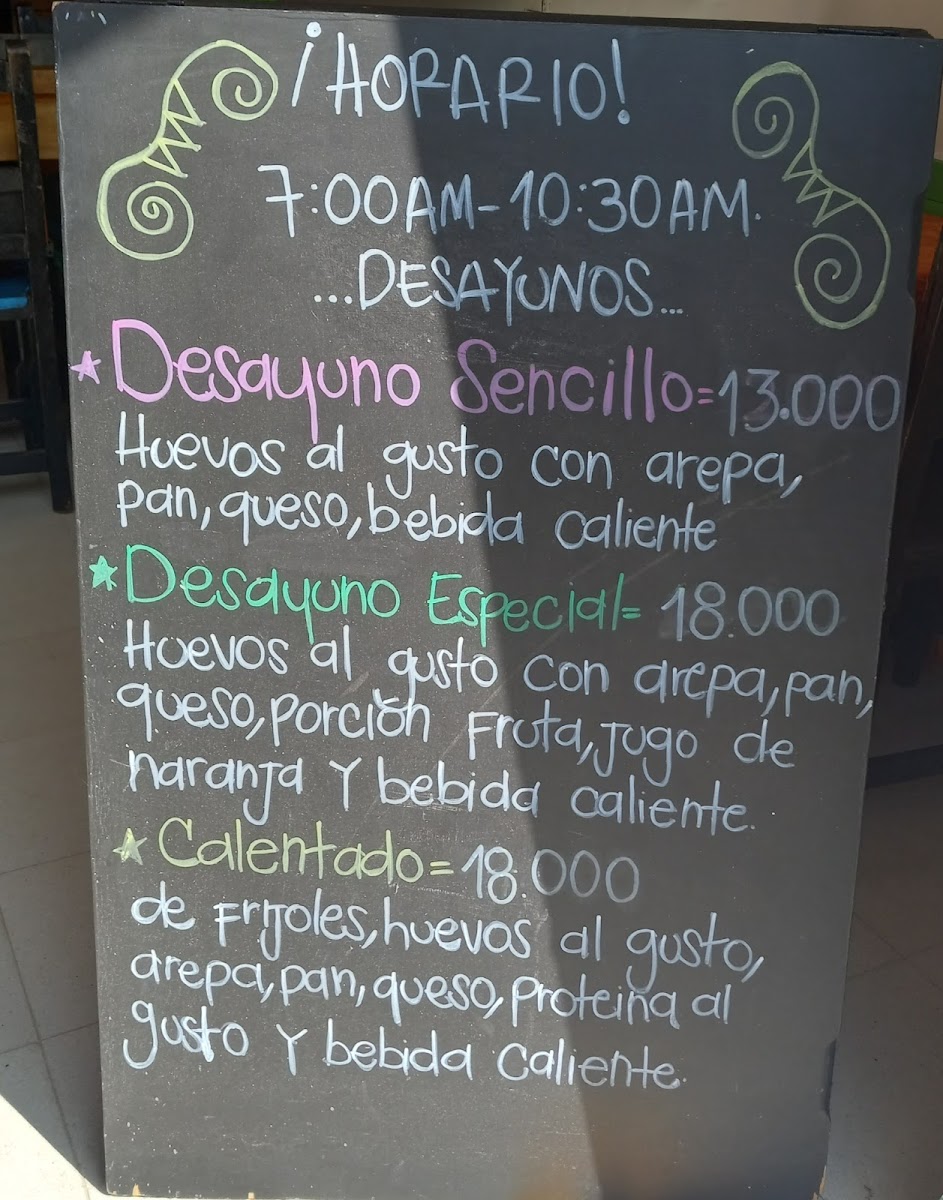 ¡HORARIO!
7:00AM-10:30AM.
...DESAYUNOS...
Desayuno Sencillo=13.000
Huevos al gusto con arepa,
pan, queso, bebida caliente
Desayuno Especial=18.000
Huevos al gusto con arepa, pan,
queso, porción Fruta, Jugo de
naranja Y bebida caliente.
Calentado=18.000
de Frijoles, huevos al gusto,
arepa, pan, queso, proteina al
gusto Y bebida caliente.